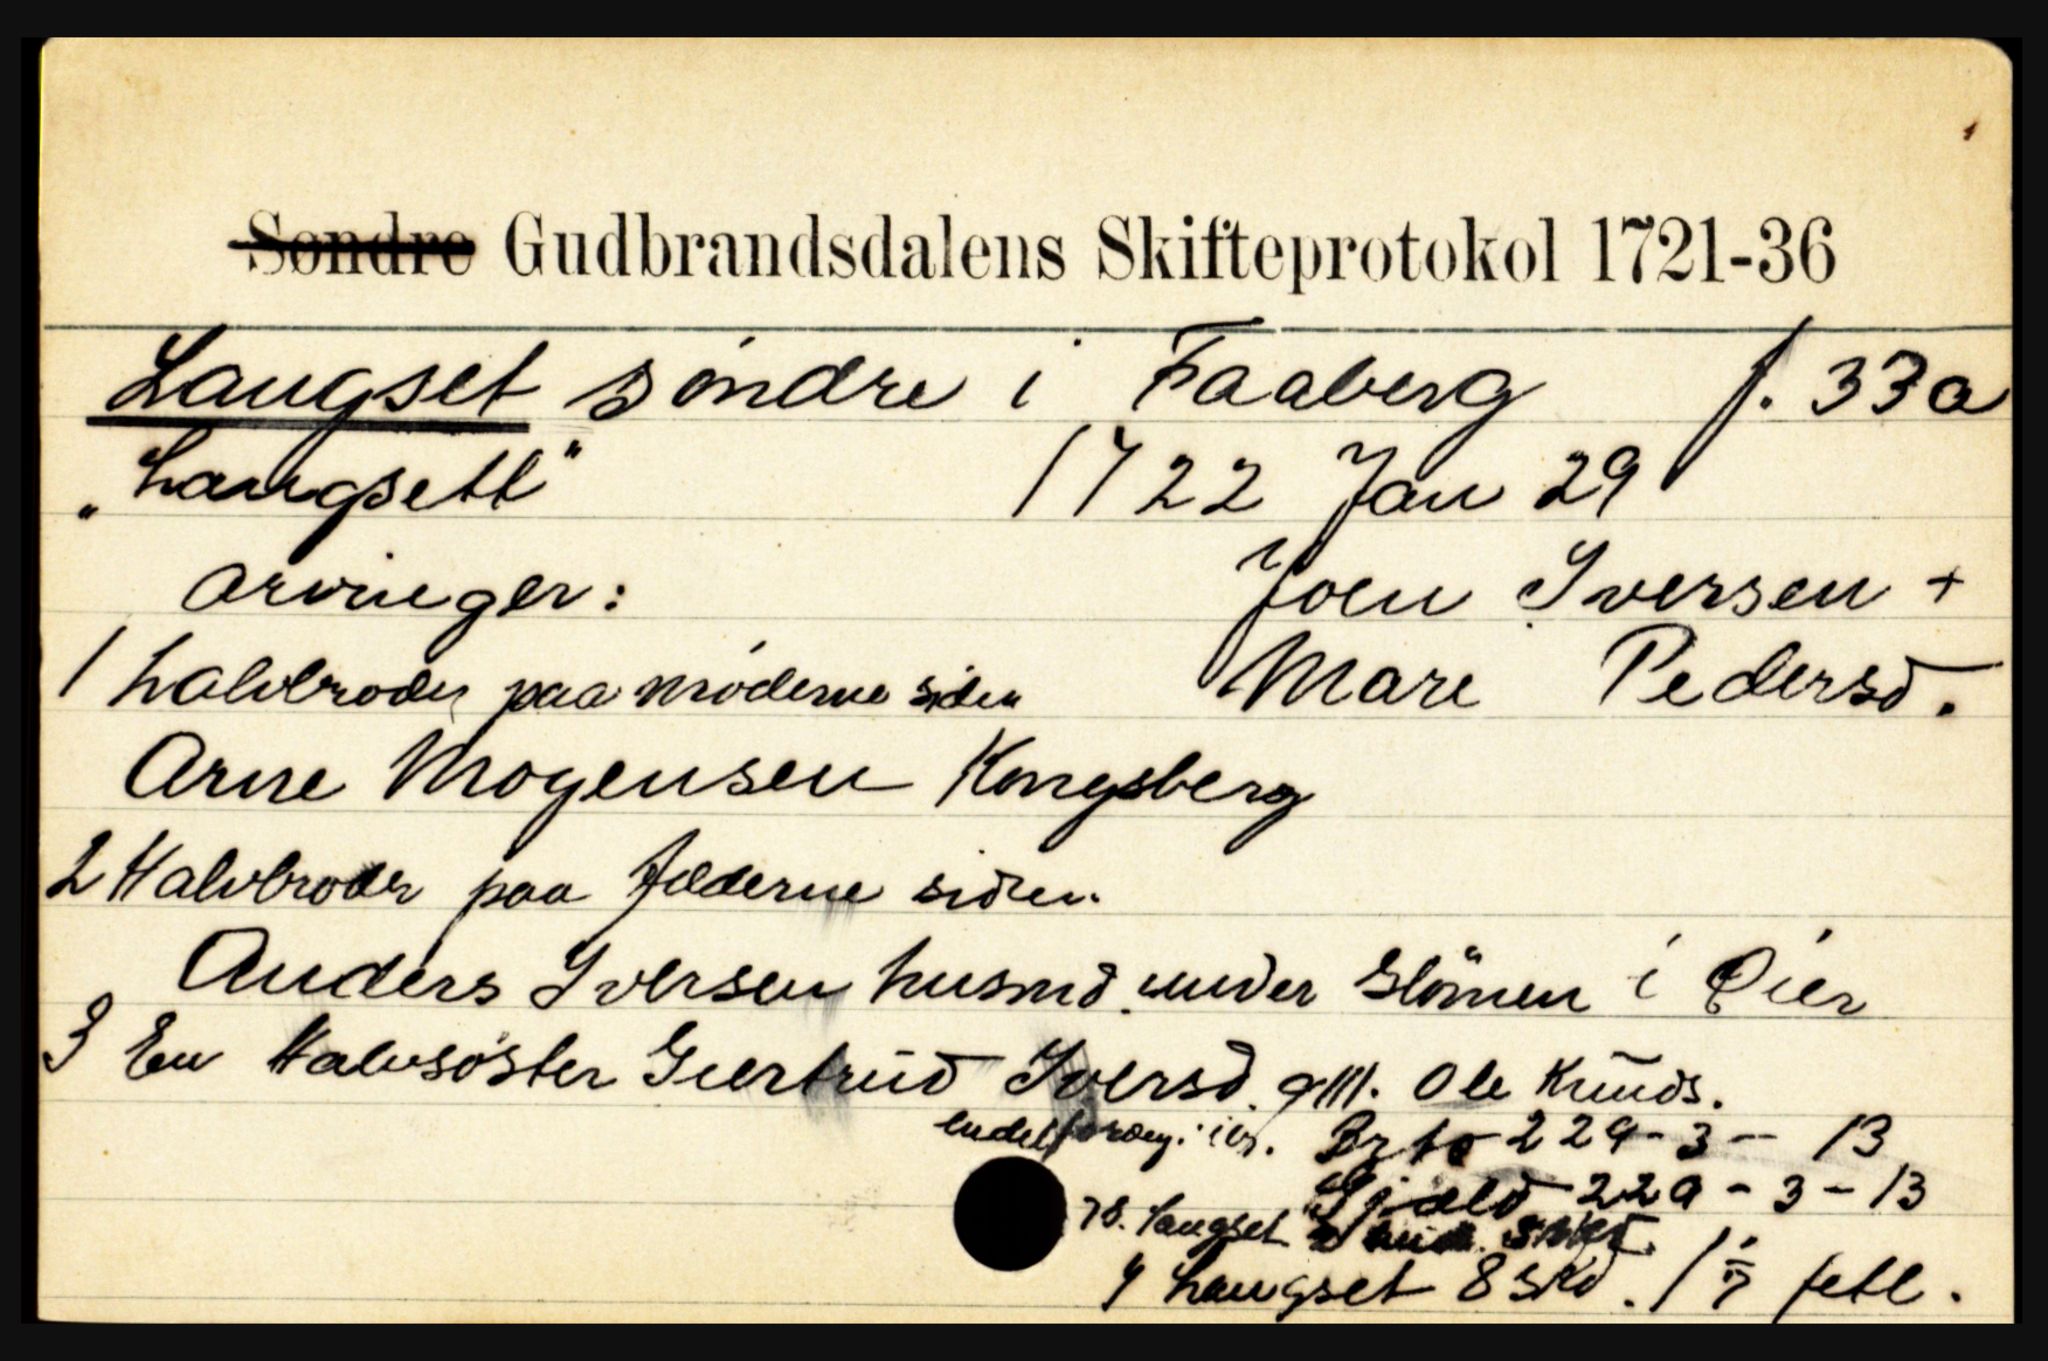 Søndre Gudbrandsdalens Skifteprotokol 1721-36
Langset söndre i Faaberg f. 33a
"Langsett" 1722 Jan 29
Arvinger: Joen Iversen +
1 halvbroder paa möderne siden Mare Pedersd.
Arne Mogensen Kongsberg
2 Halvbroder paa fæderne siden.
Anders Iversen husmd. under Glömen i Øier
3 En Halvsöster Giertrud Iversd. gm. Ole Knuds.
Brto 229-3-13
Gjæld 229-3-13
Langset
Langset 8 skd. 1 fetl.